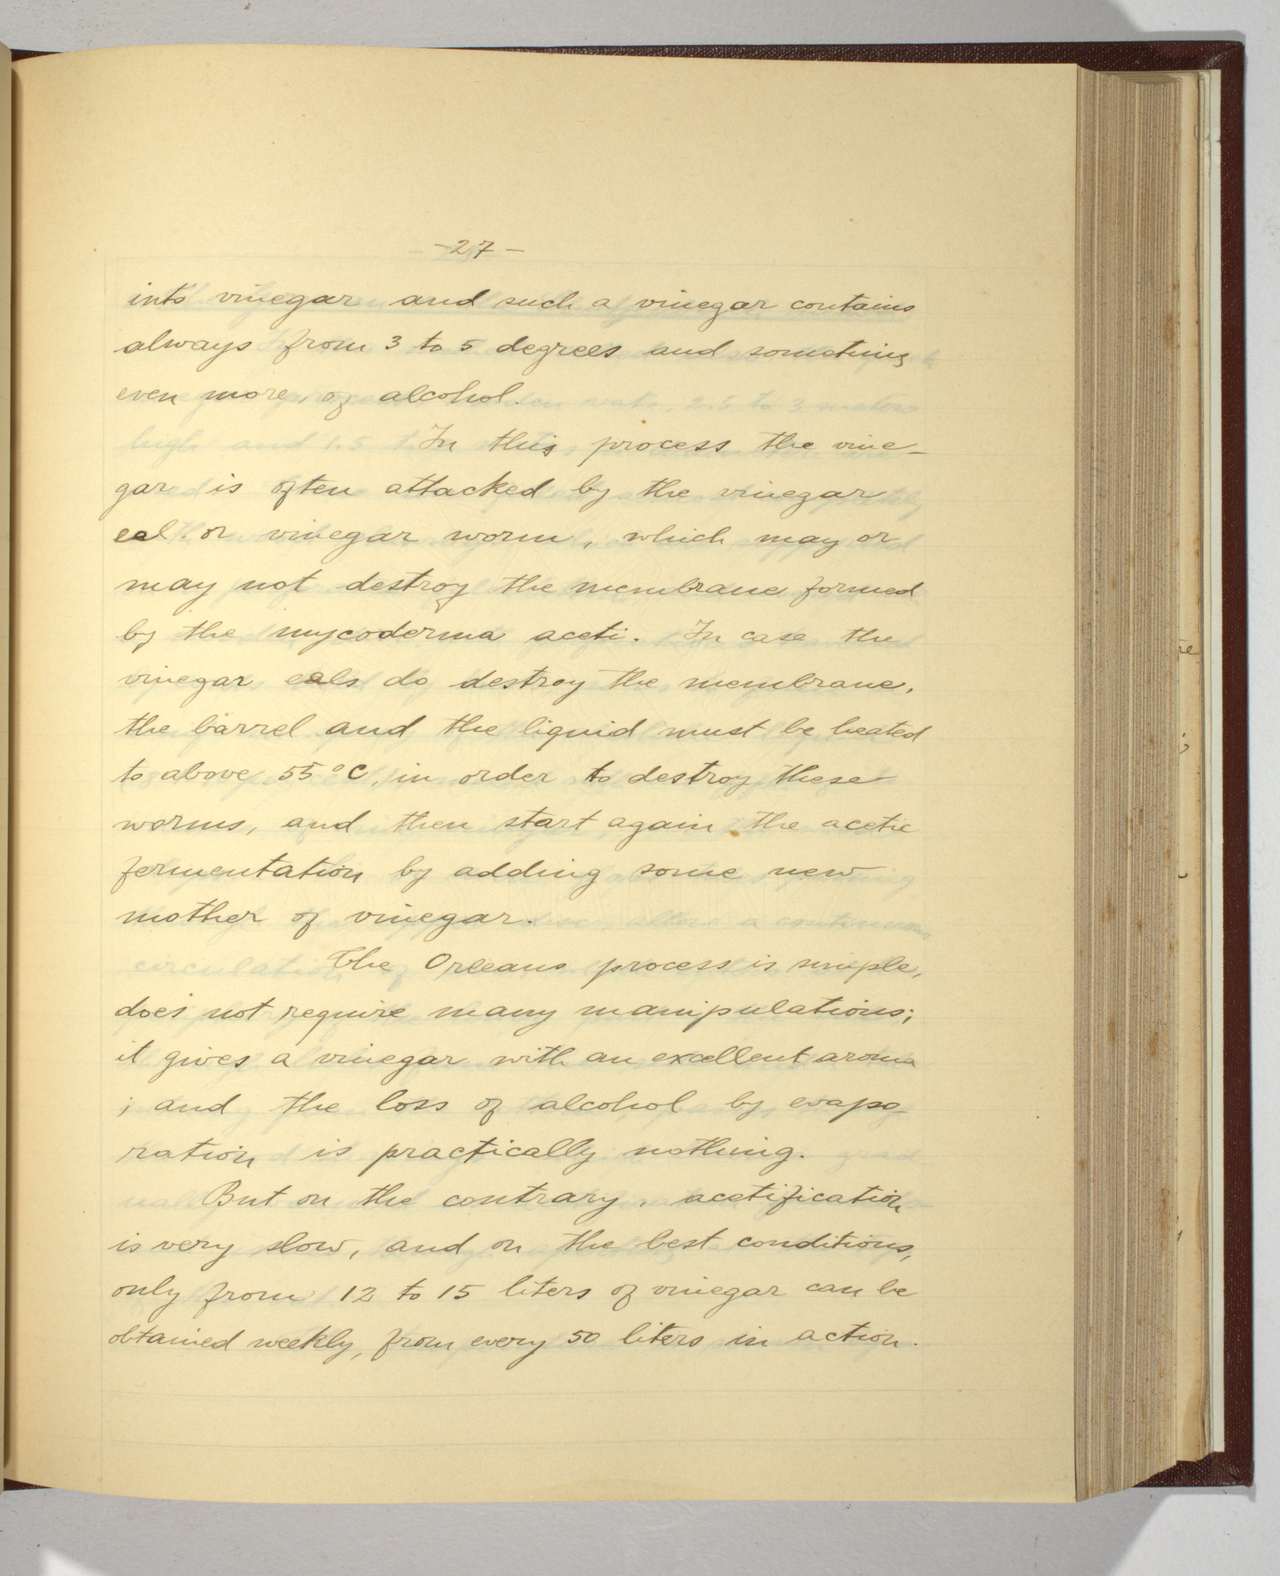 -27-
into vinegar and such a vinegar contains
always from 3 to 5 degrees and sometimes
even more, of alcohol.
In this process the vine-
gar is often attacked by the vinegar
eel or vinegar worm, which may or
may not destroy the membrane formed
by the mycoderma aceti. In case the
vinegar eels do destroy the membrane,
the barrel and the liquid must be heated
to above 55°C, in order to destroy these
worms, and then start again the acetic
fermentation by adding some new
mother of vinegar.
The Orleans process is simple,
does not require many manipulations;
it gives a vinegar with an excellent aroma
; and the loss of alcohol by evapo-
ration is practically nothing.
But on the contrary, acetification
is very slow, and on the best conditions,
only from 12 to 15 liters of vinegar can be
obtained weekly, from every 50 liters in action.